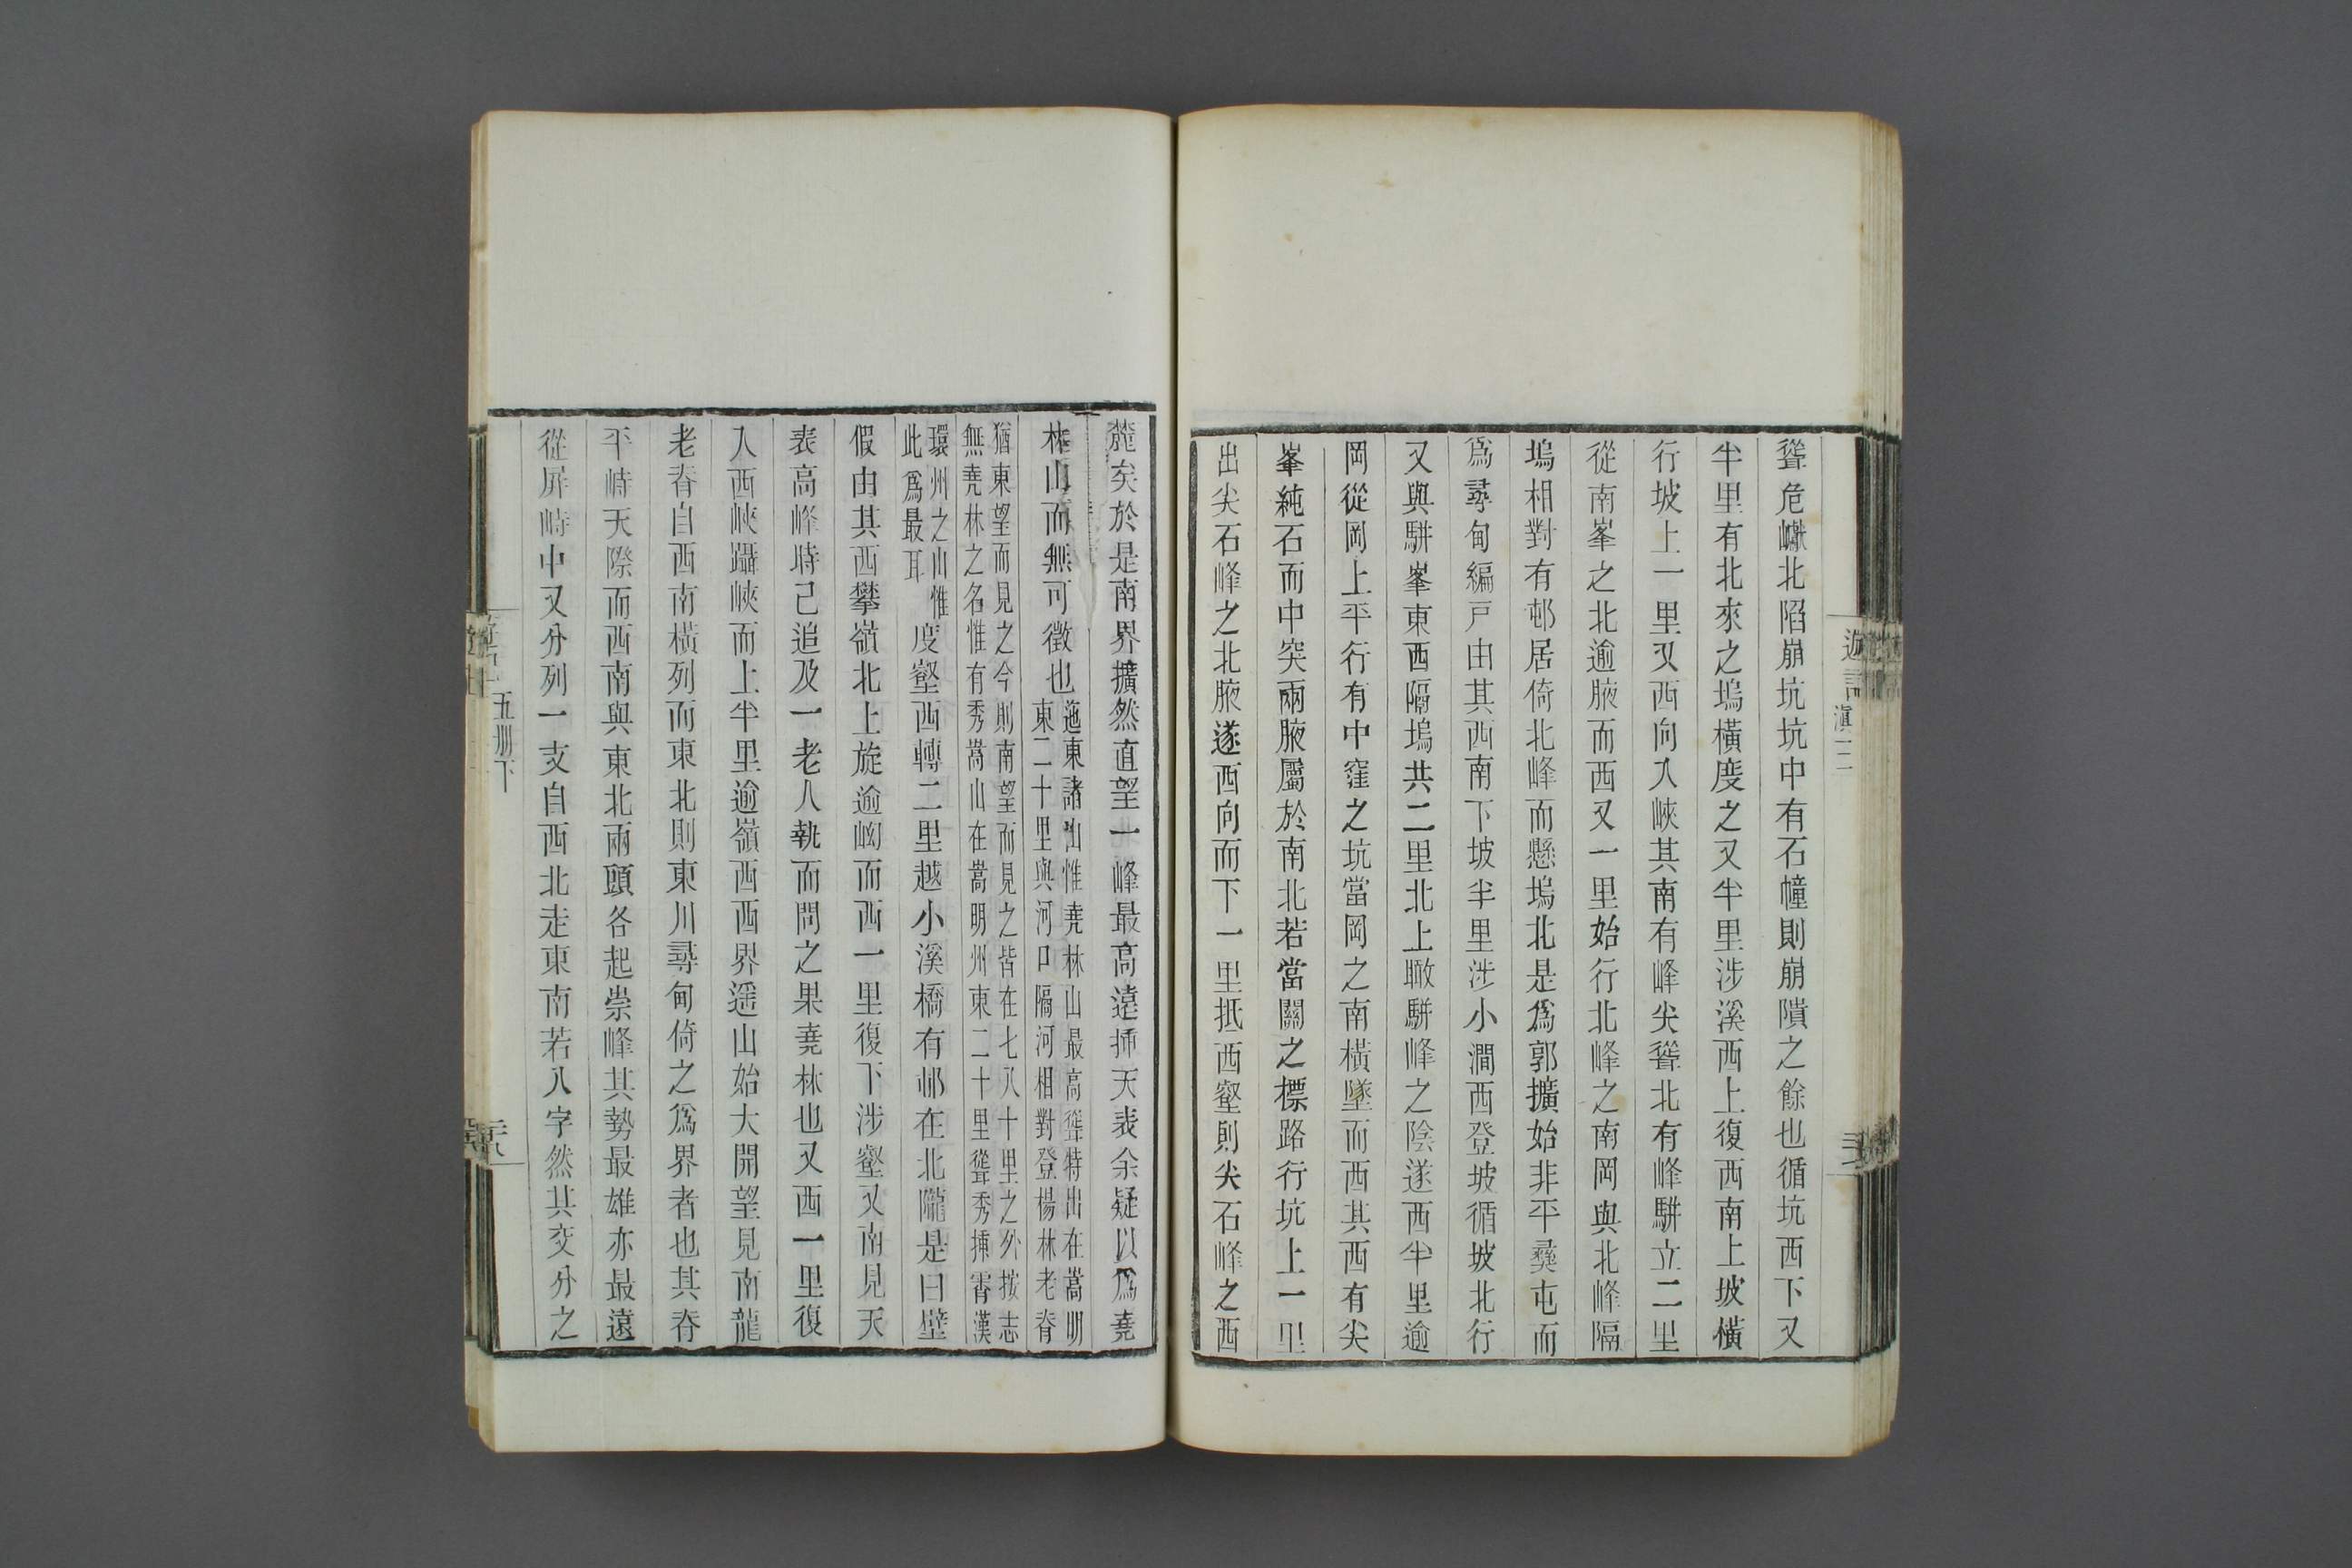 聳危嶙北陷崩坑坑中有石幢則崩隤之餘也循坑西下又
半里有北來之塢橫度之又半里涉溪西上復西南上坡橫
行坡上一里又西向入峽其南有峰尖聳北有峰駢立二里
從南峯之北逾腋而西又一里始行北峰之南岡與北峰隔
塢相對有邨居倚北峰而懸塢北是爲郭擴始非平彝屯而
爲尋甸編戸由其西南下坡半里涉小澗西登坡循坡北行
又與駢峯東西隔塢共二里北上瞰駢峰之陰遂西半里逾
岡從岡上平行有中窪之坑當岡之南橫墜而西其西有尖
峯純石而中突兩腋屬於南北若當關之標路行坑上一里
出尖石峰之北腋遂西向而下一里抵西壑則尖石峰之西
遊記 滇二
麓矣於是南界擴然直望一峰最高遠揷天表余疑以爲堯
林山而無可徵也
迤東諸山惟堯林山最高聳特出在嵩明
東二十里與河口隔河相對登楊林老脊
猶東望而見之今則南望而見之皆在七八十里之外按志
無堯林之名惟有秀嵩山在嵩明州東二十里聳秀揷霄漢
環州之山惟
此爲最耳
度壑西轉二里越小溪橋有邨在北隴是曰壁
假由其西攀嶺北上旋逾岰而西一里復下涉壑又南見天
表高峰時已追及一老人執而問之果堯林也又西一里復
入西峽躡峽而上半里逾嶺西西界遥山始大開望見南龍
老脊自西南橫列而東北則東川尋甸倚之爲界者也其脊
平峙天際而西南與東北兩頭各起崇峰其勢最雄亦最遠
從屏峙中又分列一支自西北走東南若八字然其交分之
五册下